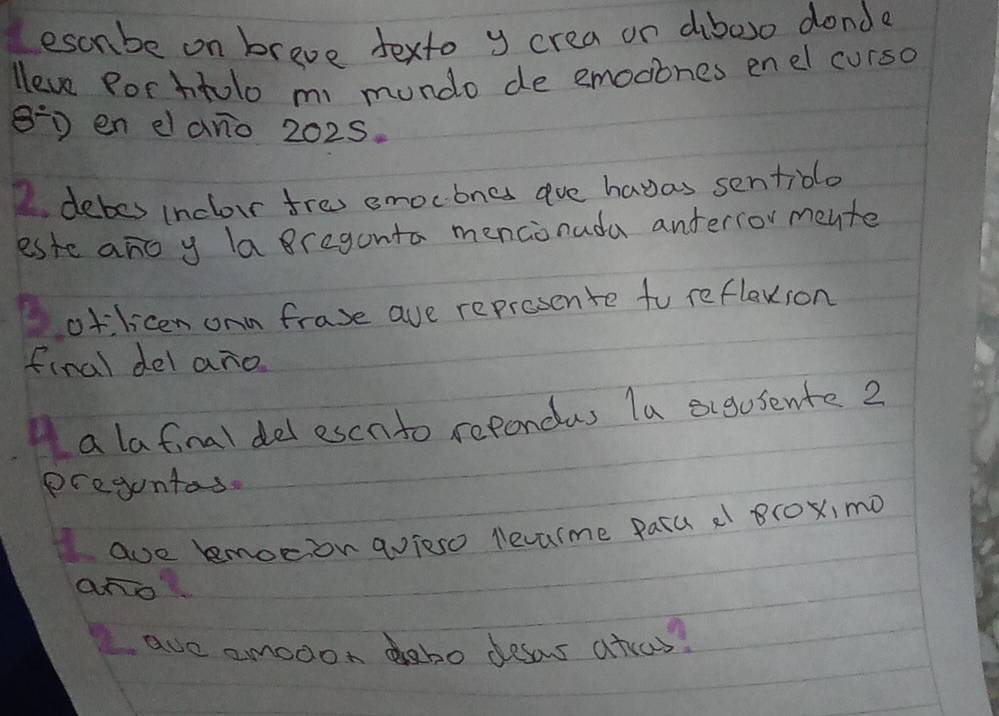 1 escribe un breve texto y crea un dibujo donde
lleve Por titulo mi mundo de emociones en el curso
8-D en el año 2025.
2. debes incluir tres emociones que hayas sentido
este año y la Pregunta mencionada anteriormente
3. utilicen una frase que represente tu reflexion
final del año.
4 a la final del escrito repondas la siguiente 2
preguntas.
1. que emocion quiero llevarme para el Proximo
año?
2. que emocion debo dejar atras?